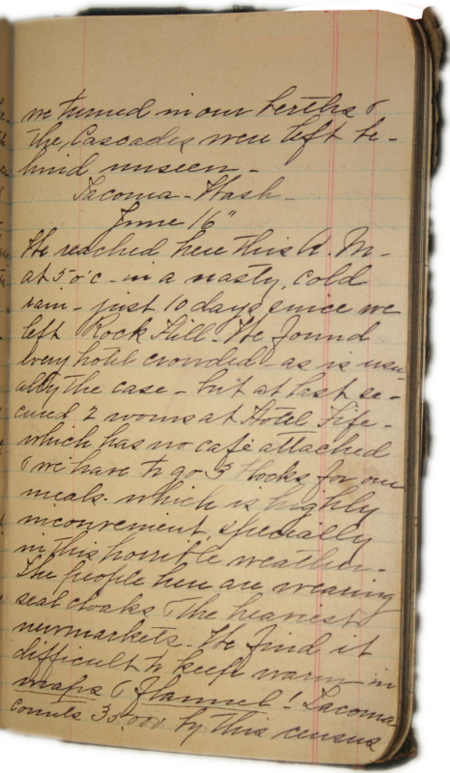 we turned in our berths &
the Cascades were left be-
hind unseen -
Tacoma - Wash -
June 16"
We reached here this A. M -
at 5 o'c - in a nasty, cold
rain - just 10 days since we
left Rock Hill - We found
every hotel crowded - as is usu-
ally the case - but at last se-
cured 2 rooms at Hotel Fife -
which has no café attached
& we have to go 3 blocks for our
meals - which is highly
inconvenient, specially
in this horrible weather -
The people here are wearing
seal cloaks & the heaviest
newmarkets. We find it
difficult to keep warm in
wraps & flannel! Tacoma
counts 35,000 by this census